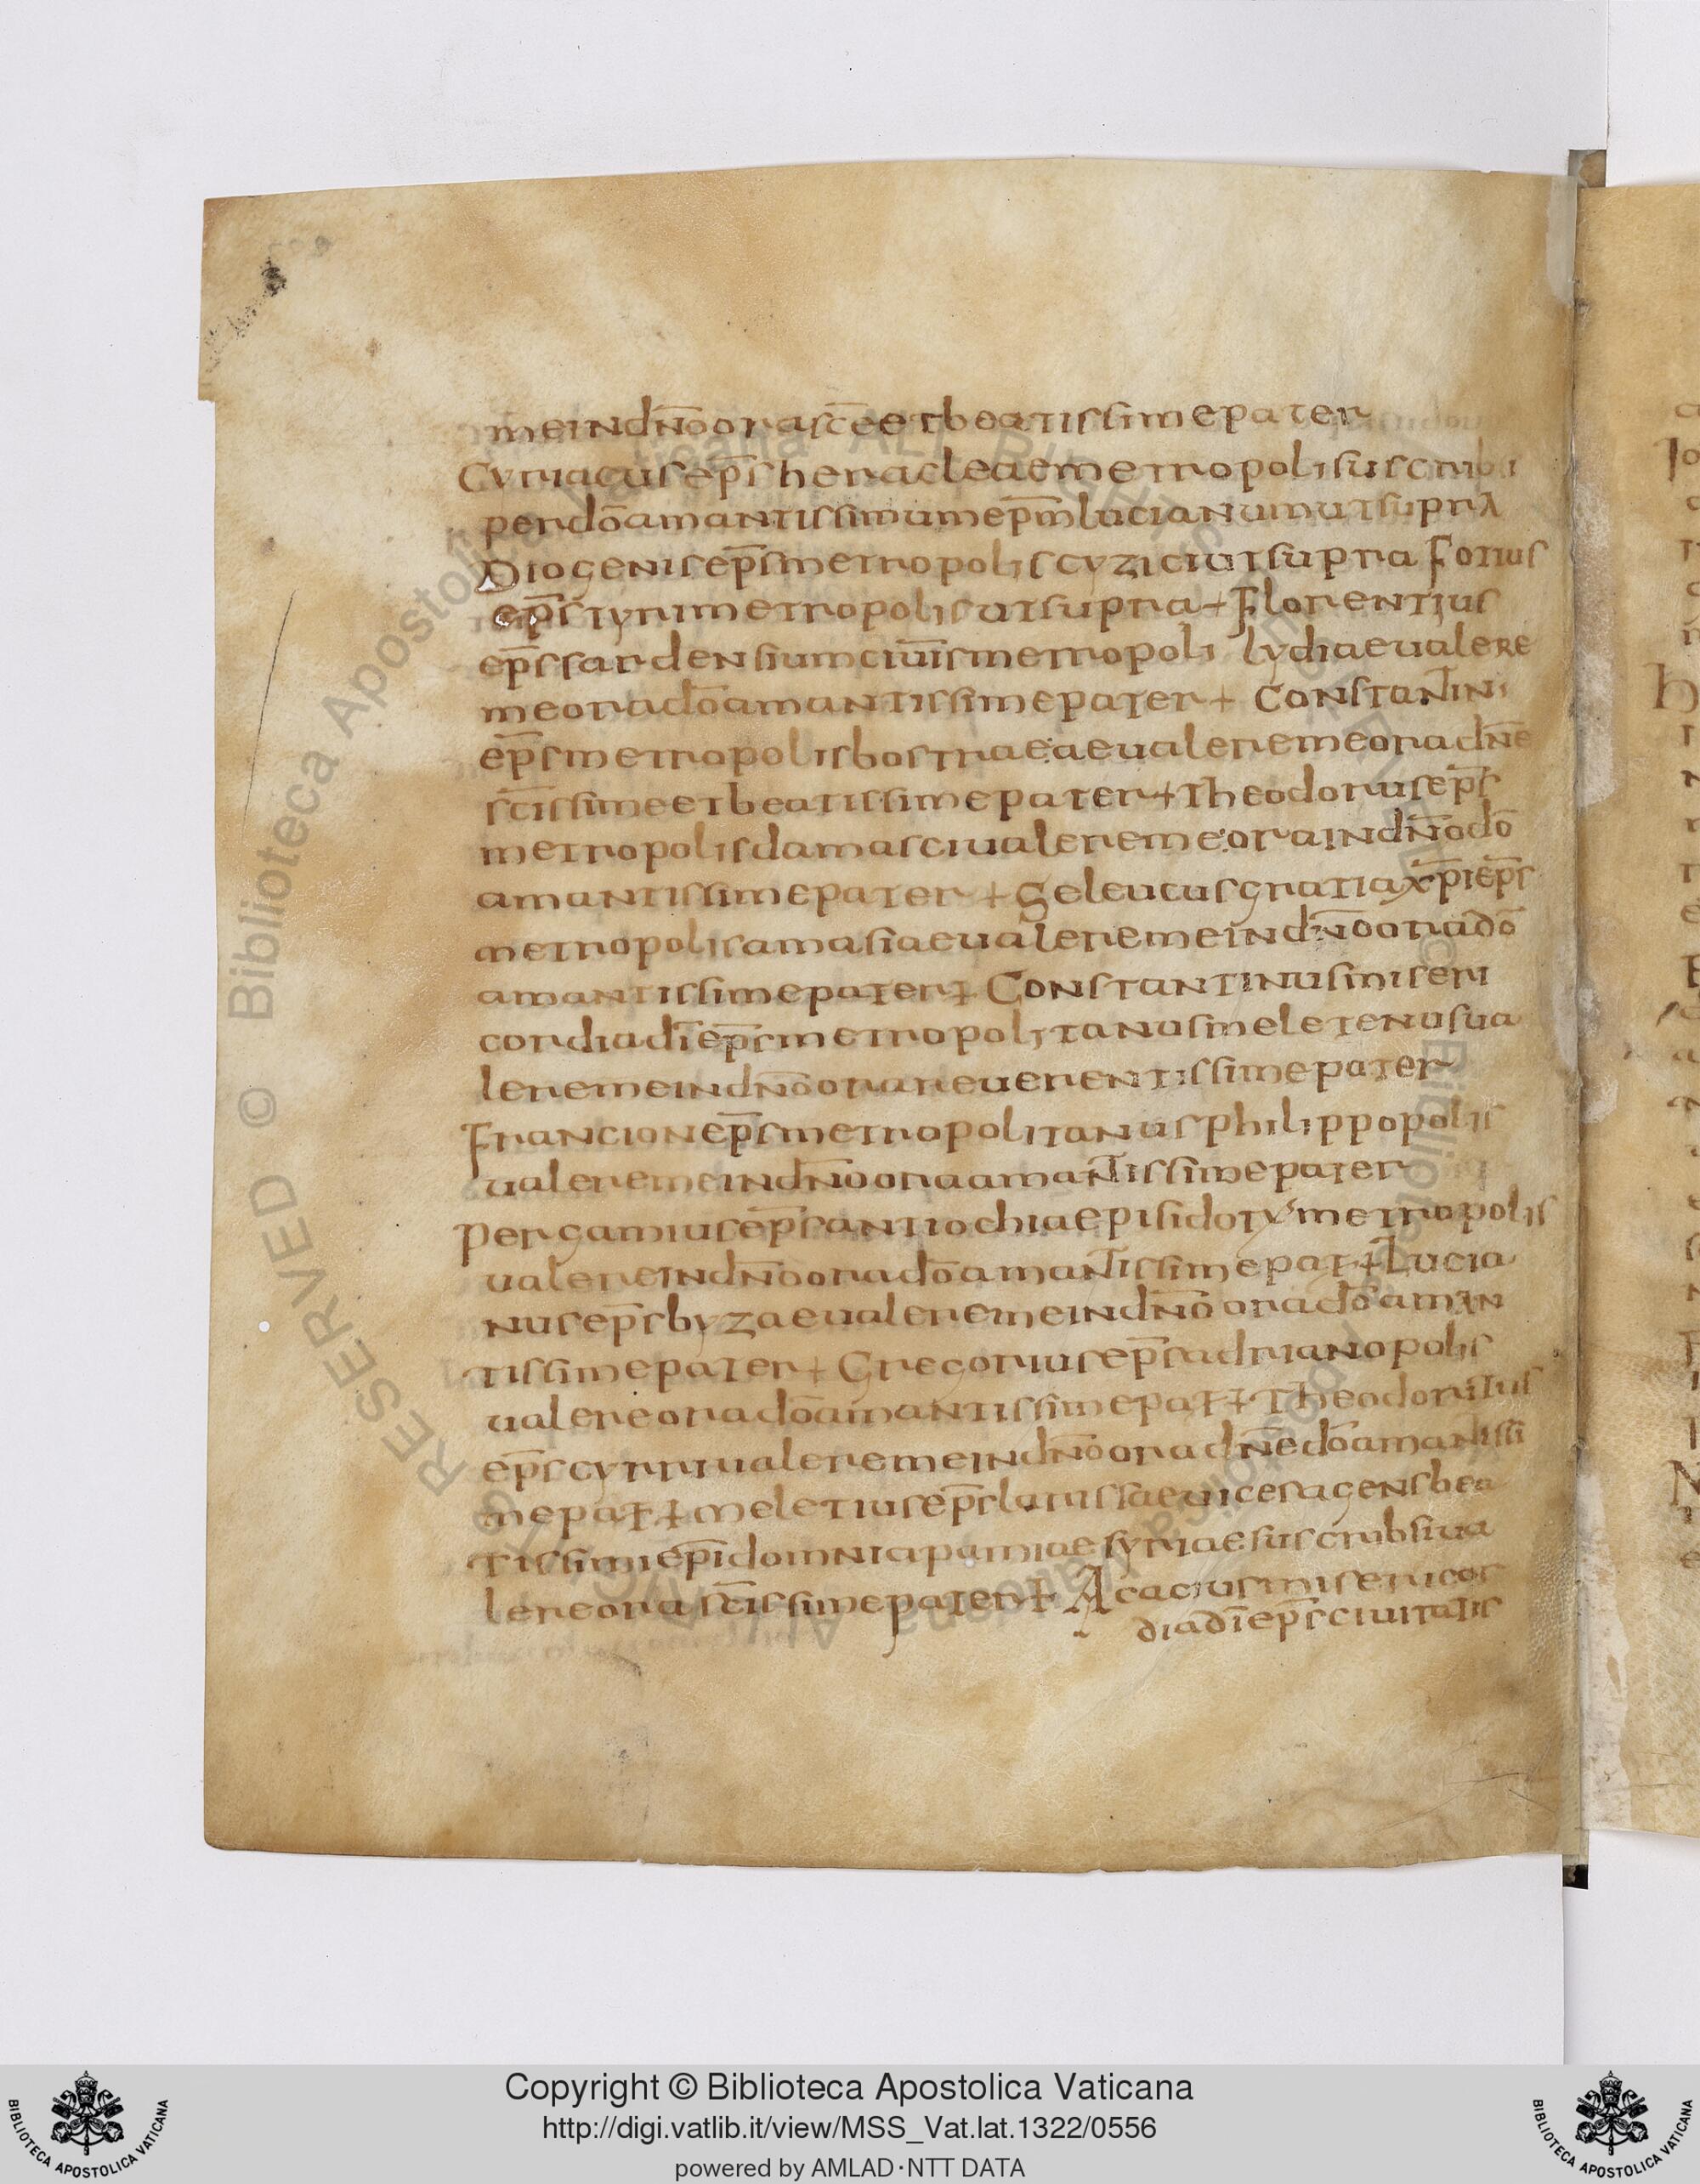 me in dn̄o ora sc̄e et beatissime pater
Cyriacus ep̄s heracleae metropoli suscribsi
per dō amantissimum ep̄m lucianum ut supra
Diogenis ep̄s metropolis cyzici ut supra Fotius
ep̄s tyri metropolis ut supra + Florentius
ep̄s sardensium ciuīs metropoli lydiae ualere
me ora dō amantissime pater + Constantini
ep̄s metropolis bostraea eualere me ora dn̄e
sc̄issime et beatissime pater + Theodorus ep̄s
metropolis damasci ualere me ora in dn̄o dō
amantissime pater + Seleucus gratia xp̄i ep̄s
metropolis amasiae ualere me in dn̄o ora dō
amantissime pater + Constantinus miseri
cordia dī ep̄s metropolitanus meletenus ua
lere me in dn̄o ora reuerentissime pater
Francion ep̄s metropolitanus philippopolis
ualere me in dn̄o ora amantissime pater
Pergamius ep̄s antiochiae pisidoty metropolis
ualere in dn̄o ora dō amantissime pat + Lucia
nus ep̄s byzae ualere me in dn̄o ora dō aman
tissime pater + Gregorius ep̄s adrianopolis
ualere ora dō amantissime pat + Theodoritus
ep̄s cyrri ualere me in dn̄o ora dn̄e dō amantissi
me pat + meletius ep̄s larissae uices agens bea
tissimi ep̄i domni apamiae syriae suscribsi ua
lere ora sc̄issime pater + Acacius misericor
dia dī ep̄s ciuitatis
Copyright © Biblioteca Apostolica Vaticana
http://digi.vatlib.it/view/MSS_Vat.lat.1322/0556
powered by AMLAD·NTT DATA
BIBLIOTECA APOSTOLICA VATICANA
BIBLIOTECA APOSTOLICA VATICANA